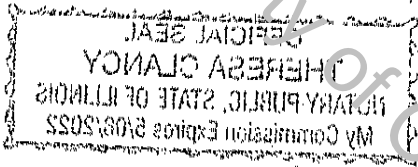 OFFICIAL SEAL
THERESA CLANCY
NOTARY PUBLIC, STATE OF ILLINOIS
My Commission Expires 5/08/2022